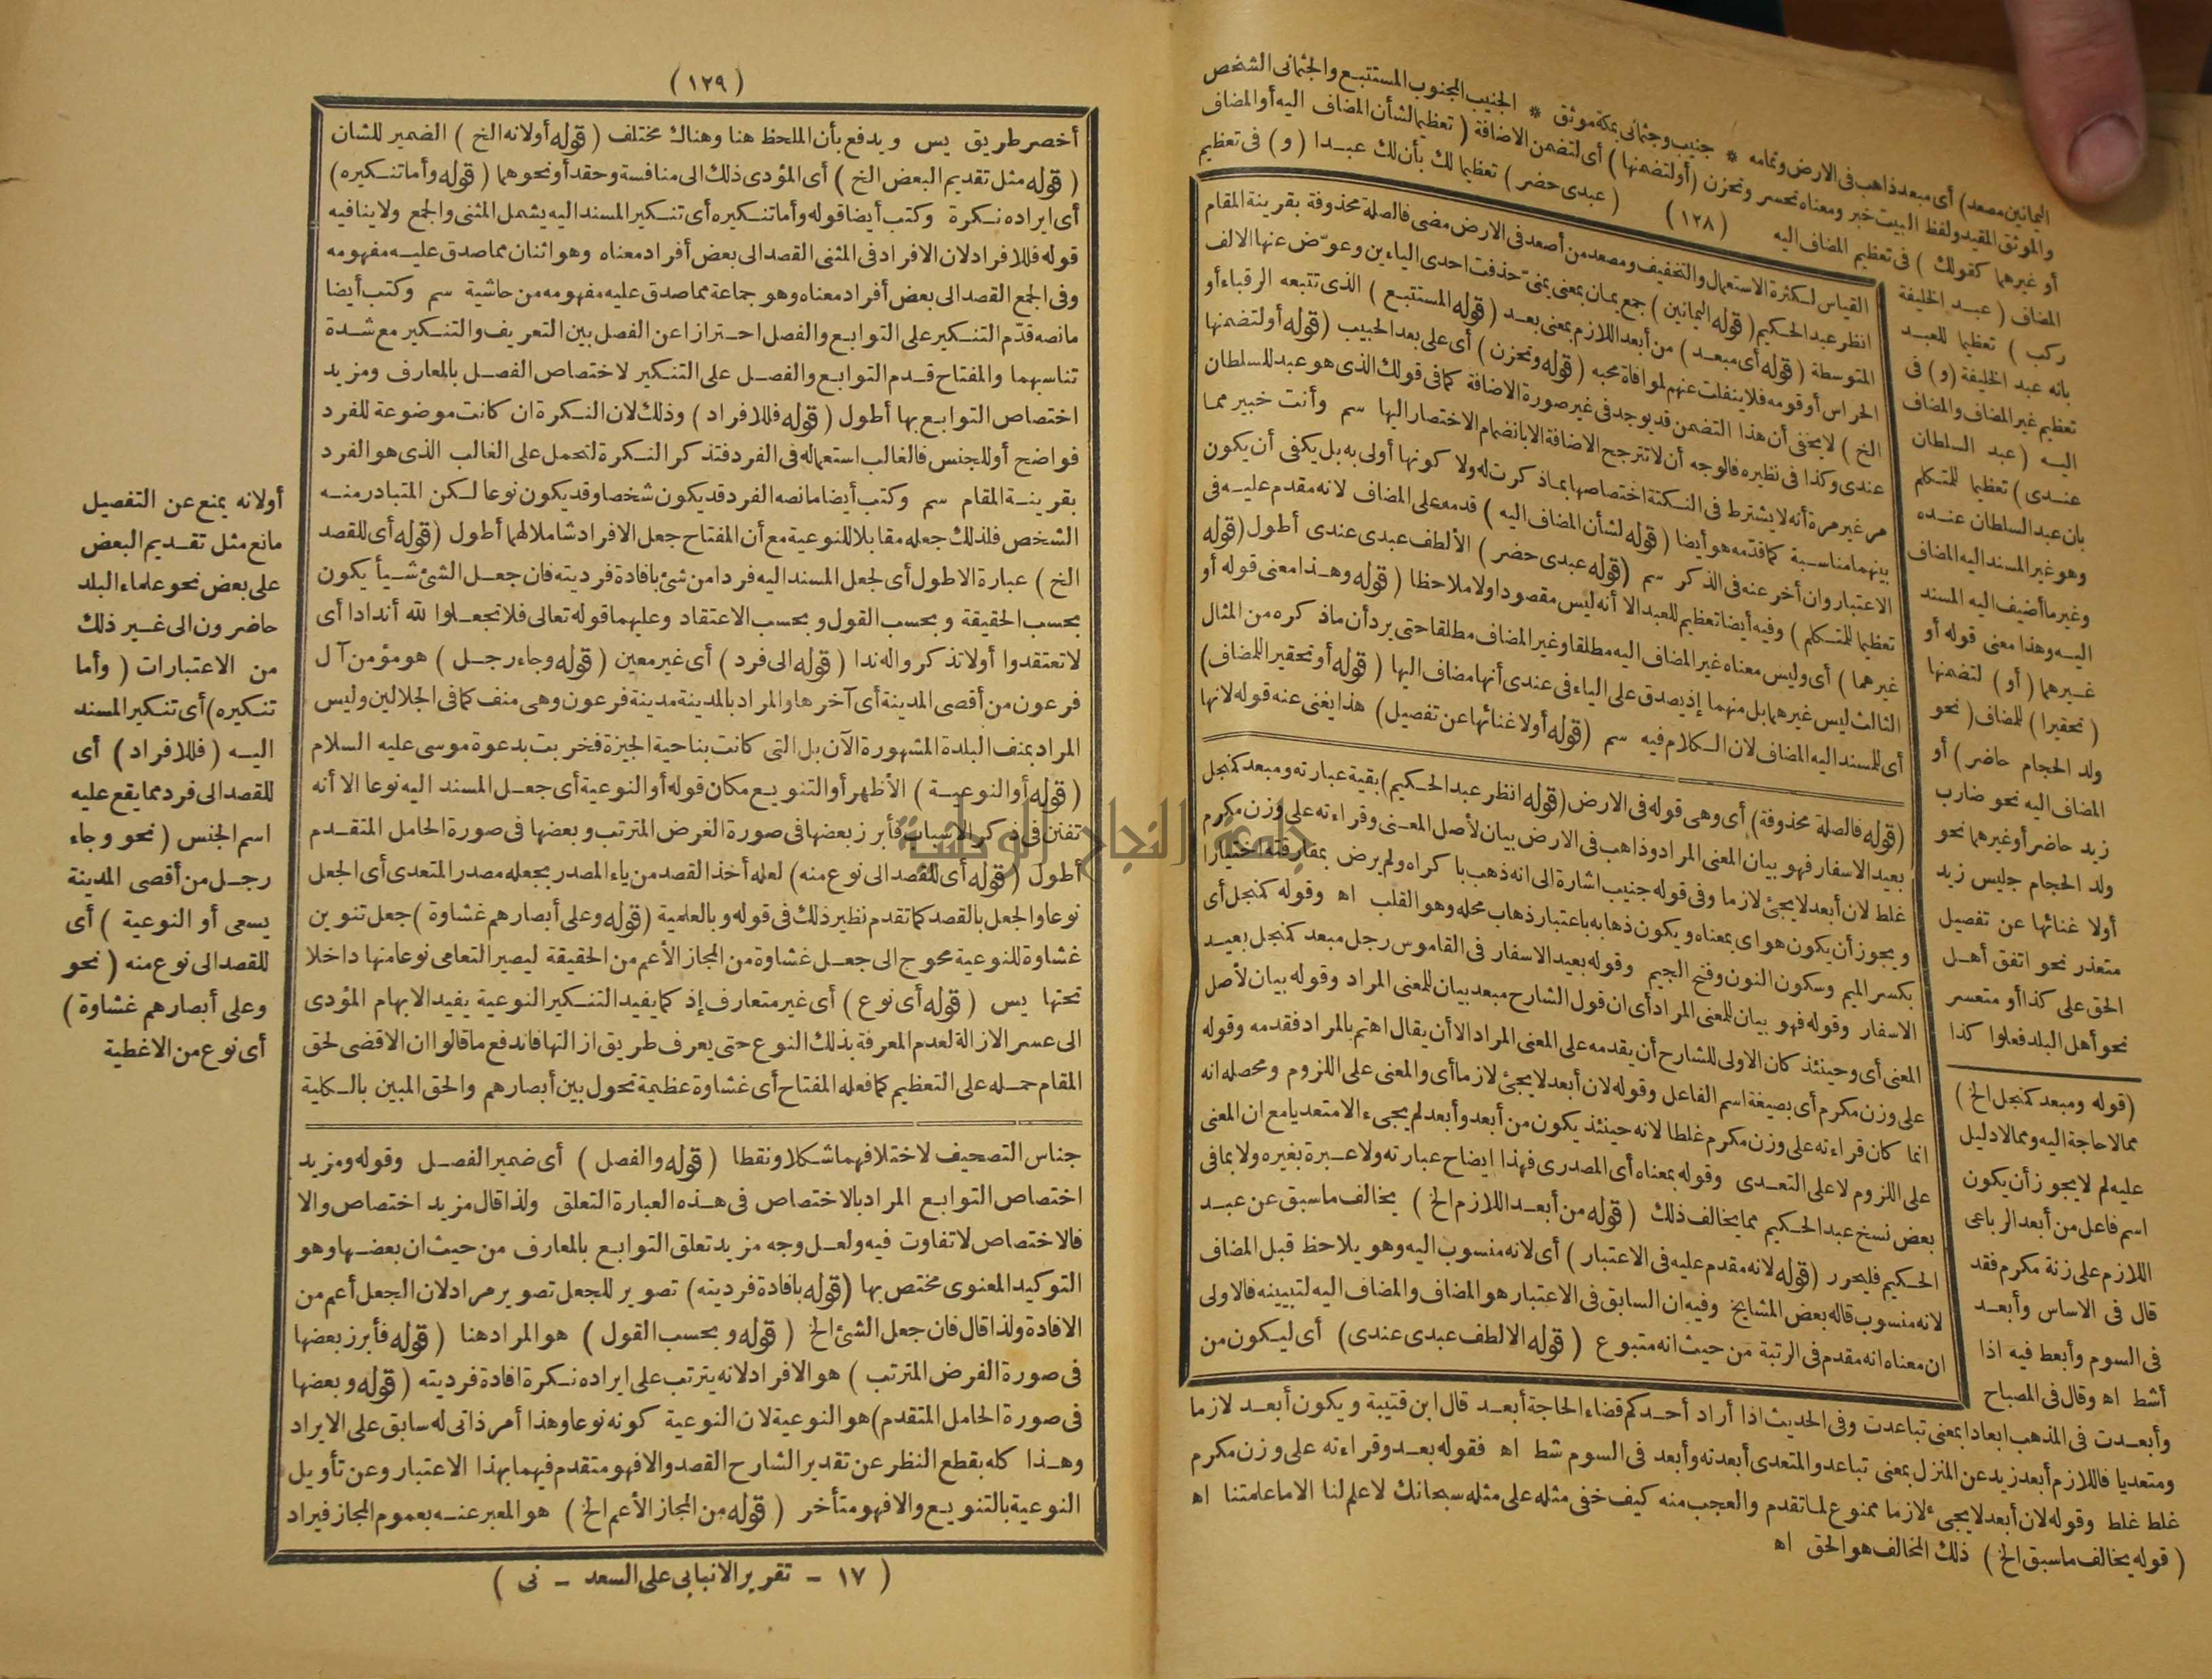 اليمانين مصعد) أى مبعد ذاهب فى الارض وتمامه * جنيب وجثمانى بمكة موثق * الجنيب المجنوب المستتبع والجثمانى الشخص
والموثق المقيد ولفظ البيت خبر ومعناه تحسر وتحزن (أو لتضمنها) أى لتضمن الاضافة (تعظيما لشأن المضاف اليه أو المضاف
أو غيرهما كقولك) فى تعظيم المضاف اليه (١٢٨) (عبدى حضر) تعظيما لك بأن لك عبدا (و) فى تعظيم
المضاف (عبد الخليفة
ركب) تعظيما للعبد
بانه عبد الخليفة (و) فى
تعظيم غير المضاف والمضاف
اليه (عبد السلطان
عندى) تعظيما للمتكلم
بان عبد السلطان عنده
وهو غير المسند اليه المضاف
وغير ما أضيف اليه المسند
اليه وهذا معنى قوله أو
غيرهما (أو) لتضمنها
(تحقيرا) للمضاف (نحو
ولد الحجام حاضر) أو
المضاف اليه نحو ضارب
زيد حاضر أو غيرهما نحو
ولد الحجام جليس زيد
أولا غنائها عن تفصيل
متعذر نحو اتفق أهل
الحق على كذا أو متعسر
نحو أهل البلد فعلوا كذا
القياس لكثرة الاستعمال والتخفيف ومصعد من أصعد فى الارض مضى فالصلة محذوفة بقرينة المقام
انظر عبد الحكيم (قوله اليمانين) جمع يمان بمعنى يمنى حذفت احدى الياءين وعوّض عنها الالف
المتوسطة (قوله أى مبعد) من أبعد اللازم بمعنى بعد (قوله المستتبع) الذى تتبعه الرقباء أو
الحراس أو قومه فلا ينفلت عنهم لموافاة محبه (قوله وتحزن) أى على بعد الحبيب (قوله أو لتضمنها
الخ) لا يخفى أن هذا التضمن قد يوجد فى غير صورة الاضافة كما فى قولك الذى هو عبد للسلطان
عندى وكذا فى نظيره فالوجه أن لا تترجح الاضافة الا بانضمام الاختصار اليها سم وأنت خبير مما
مر غير مرة أنه لا يشترط فى النكتة اختصاصها بماذ كرت له ولا كونها أولى به بل يكفى أن يكون
بينهما مناسبة كما قدّمه هو أيضا (قوله لشأن المضاف اليه) قدمه على المضاف لانه مقدم عليه فى
الاعتبار وان أخر عنه فى الذكر سم (قوله عبدى حضر) الألطف عبدى عندى أطول (قوله
تعظيما للمتكلم) وفيه أيضا تعظيم للعبد الا أنه ليس مقصودا ولا ملاحظا (قوله وهذا معنى قوله أو
غيرهما) أى وليس معناه غير المضاف اليه مطلقا وغير المضاف مطلقا حتى يرد أن ماذ كره من المثال
الثالث ليس غيرهما بل منهما إذ يصدق على الياء فى عندى أنها مضاف اليها (قوله أو تحقير اللمضاف)
أى للمسند اليه المضاف لان الكلام فيه سم (قوله أولا غنائها عن تفصيل) هذا يغنى عنه قوله لانها
(قوله فالصلة محذوفة) أى وهى قوله فى الارض (قوله انظر عبد الحكيم) بقية عبارته ومبعد كمنجل
بعيد الاسفار فهو بيان المعنى المراد وذاهب فى الارض بيان لأصل المعنى وقراءته على وزن مكرم
غلط لان أبعد لا يجئ لازما وفى قوله جنيب اشارة الى انه ذهب با كراه ولم يرض بمفارقته اختيارا
ويجوز أن يكون هواى بمعناه ويكون ذهابه باعتبار ذهاب محله وهو القلب اه وقوله كمنجل أى
بكسر الميم وسكون النون وفتح الجيم وقوله بعيد الاسفار فى القاموس رجل مبعد كمنجل بعيد
الاسفار وقوله فهو بيان للمعنى المراد أى ان قول الشارح مبعد بيان للمعنى المراد وقوله بيان لأصل
المعنى أى وحينئذ كان الاولى للشارح أن يقدمه على المعنى المراد الا أن يقال اهتم بالمراد فقدمه وقوله
على وزن مكرم أى بصيغة اسم الفاعل وقوله لان أبعد لا يجئ لازما أى والمعنى على اللزوم ومحصله انه
انما كان قراءته على وزن مكرم غلطا لانه حينئذ يكون من أبعد وأبعد لم يجىء الا متعديا مع ان المعنى
على اللزوم لا على التعدى وقوله بمعناه أى المصدرى فهذا ايضاح عبارته ولا عبرة بغيره ولا بما فى
بعض نسخ عبد الحكيم مما يخالف ذلك (قوله من أبعد اللازم الخ) يخالف ما سبق عن عبد
الحكيم فليحرر (قوله لانه مقدم عليه فى الاعتبار) أى لانه منسوب اليه وهو يلاحظ قبل المضاف
لانه منسوب قاله بعض المشايخ وفيه ان السابق فى الاعتبار هو المضاف والمضاف اليه لتبيينه فالاولى
ان معناه انه مقدم فى الرتبة من حيث انه متبوع (قوله الالطف عبدى عندى) أى ليكون من
(قوله ومبعد كمنجل الخ)
مما لا حاجة اليه ومما لا دليل
عليه لم لا يجوز أن يكون
اسم فاعل من أبعد الرباعى
اللازم على زنة مكرم فقد
قال فى الاساس وأبعد
فى السوم وأبعط فيه اذا
أشط اه وقال فى المصباح
وأبعدت فى المذهب ابعادا بمعنى تباعدت وفى الحديث اذا أراد أحدكم قضاء الحاجة أبعد قال ابن قتيبة ويكون أبعد لازما
ومتعديا فاللازم أبعد زيد عن المنزل بمعنى تباعد والمتعدى أبعدته وأبعد فى السوم شط اه فقوله بعد وقراءته على وزن مكرم
غلط غلط وقوله لان أبعد لا يجىء لازما ممنوع لما تقدم والعجب منه كيف خفى مثله على مثله سبحانك لا علم لنا الا ما علمتنا اه
(قوله يخالف ما سبق الخ) ذلك المخالف هو الحق اه
(١٢٩)
أخصر طريق يس ويدفع بأن الملحظ هنا وهناك مختلف (قوله أولانه الخ) الضمير للشان
(قوله مثل تقديم البعض الخ) أى المؤدى ذلك الى منافسة وحقد أو نحوهما (قوله وأما تنكيره)
أى ايراده نكرة وكتب أيضا قوله وأما تنكيره أى تنكير المسند اليه يشمل المثنى والجمع ولا ينافيه
قوله فللافراد لان الافراد فى المثنى القصد الى بعض أفراد معناه وهو اثنان مما صدق عليه مفهومه
وفى الجمع القصد الى بعض أفراد معناه وهو جماعة مما صدق عليه مفهومه من حاشية سم وكتب أيضا
مانصه قدّم التنكير على التوابع والفصل احترازا عن الفصل بين التعريف والتنكير مع شدة
تناسبهما والمفتاح قدم التوابع والفصل على التنكير لاختصاص الفصل بالمعارف ومزيد
اختصاص التوابع بها أطول (قوله فللافراد) وذلك لان النكرة ان كانت موضوعة للفرد
فواضح أو للجنس فالغالب استعماله فى الفرد فتذكر النكرة لتحمل على الغالب الذى هو الفرد
بقرينة المقام سم وكتب أيضا مانصه الفرد قد يكون شخصا وقد يكون نوعا لكن المتبادر منه
الشخص فلذلك جعله مقابلا للنوعية مع أن المفتاح جعل الافراد شاملا لهما أطول (قوله أى للقصد
الخ) عبارة الاطول أى لجعل المسند اليه فردا من شئ بافادة فرديته فان جعل الشئ شيأ يكون
بحسب الحقيقة وبحسب القول وبحسب الاعتقاد وعليهما قوله تعالى فلا تجعلوا لله أندادا أى
لا تعتقدوا أولا تذكر واله ندا (قوله الى فرد) أى غير معين (قوله وجاء رجل) هو مؤمن آل
فرعون من أقصى المدينة أى آخرها والمراد بالمدينة مدينة فرعون وهى منف كما فى الجلالين وليس
المراد بمنف البلدة المشهورة الآن بل التى كانت بناحية الجيزة فخربت بدعوة موسى عليه السلام
(قوله أو النوعية) الأظهر أو التنويع مكان قوله أو النوعية أى جعل المسند اليه نوعا الا أنه
تفنن فى ذكر الاسباب فأبرز بعضها فى صورة الغرض المترتب وبعضها فى صورة الحامل المتقدم
أطول (قوله أى للقصد الى نوع منه) لعله أخذ القصد من ياء المصدر بجعله مصدر المتعدى أى الجعل
نوعا والجعل بالقصد كما تقدم نظير ذلك فى قوله وبالعلمية (قوله وعلى أبصارهم غشاوة) جعل تنوين
غشاوة للنوعية محوج الى جعل غشاوة من المجاز الأعم من الحقيقة ليصير التعامى نوعا منها داخلا
تحتها يس (قوله أى نوع) أى غير متعارف إذ كما يفيد التنكير النوعية يفيد الابهام المؤدى
الى عسر الازالة لعدم المعرفة بذلك النوع حتى يعرف طريق ازالتها فاندفع ما قالوا ان الاقضى لحق
المقام حمله على التعظيم كما فعله المفتاح أى غشاوة عظيمة تحول بين أبصارهم والحق المبين بالكلية
جناس التصحيف لاختلافهما شكلا ونقطا (قوله والفصل) أى ضمير الفصل وقوله ومزيد
اختصاص التوابع المراد بالاختصاص فى هذه العبارة التعلق ولذا قال مزيد اختصاص والا
فالاختصاص لا تفاوت فيه ولعل وجه مزيد تعلق التوابع بالمعارف من حيث ان بعضها وهو
التوكيد المعنوى مختص بها (قوله بافادة فرديته) تصوير للجعل تصوير مراد لان الجعل أعم من
الافادة ولذا قال فان جعل الشئ الخ (قوله وبحسب القول) هو المراد هنا (قوله فأبرز بعضها
فى صورة الغرض المترتب) هو الافراد لانه يترتب على ايراده نكرة افادة فرديته (قوله وبعضها
فى صورة الحامل المتقدم) هو النوعية لان النوعية كونه نوعا وهذا أمر ذاتى له سابق على الايراد
وهذا كله بقطع النظر عن تقدير الشارح القصد والا فهو متقدم فيهما بهذا الاعتبار وعن تأويل
النوعية بالتنويع والا فهو متأخر (قوله من المجاز الأعم الخ) هو المعبر عنه بعموم المجاز فيراد
أولانه يمنع عن التفصيل
مانع مثل تقديم البعض
على بعض نحو علماء البلد
حاضرون الى غير ذلك
من الاعتبارات (وأما
تنكيره) أى تنكير المسند
اليه (فللافراد) أى
للقصد الى فرد مما يقع عليه
اسم الجنس (نحو وجاء
رجل من أقصى المدينة
يسعى أو النوعية) أى
للقصد الى نوع منه (نحو
وعلى أبصارهم غشاوة)
أى نوع من الاغطية
(١٧ - تقرير الانبابى على السعد - نى)
جامعة النجاح الوطنية